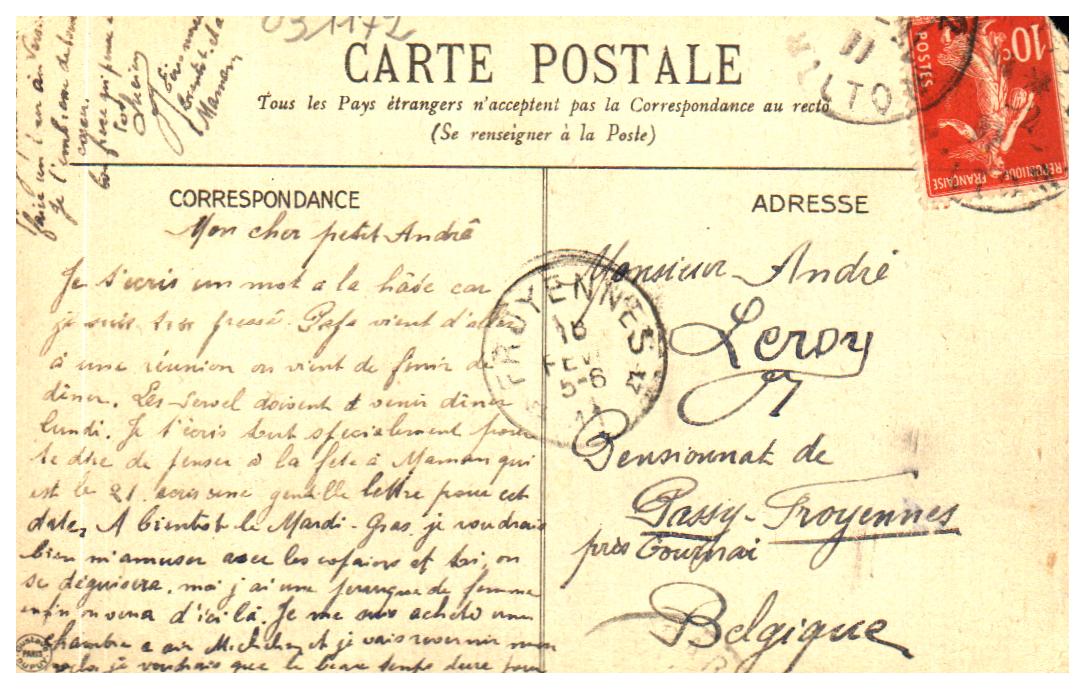 031172
CARTE POSTALE
Tous les Pays étrangers n'acceptent pas la Correspondance au recto
(Se renseigner à la Poste)
10c
POSTES
REPUBLIQUE FRANÇAISE
CORRESPONDANCE
ADRESSE
Mon cher petit André
Je t'écris un mot a la hâte car
je suis très pressé. Papa vient d'aller
à une réunion on vient de finir de
dîner. Les doivent venir dîner
lundi. Je t'écris tout spécialement pour
te dire de penser à la fête à Maman qui
est le 21. écris une gentille lettre pour cet
date. A bientôt le Mardi-Gras, je voudrais
bien m'amuser avec les copains et toi, on
se déguisera, moi j'ai une perruque de femme
enfin on verra d'ici là. Je me suis acheté une
chambre a air Michelin et je vais revernir mon
vélo je voudrais que le beau temps dure pour
faire un tour
Je t'embrasse de tout
coeur
Maman
FROYENNES
16
5-6
11
Monsieur André
Leroy
Pensionnat de
Passy-Froyennes
près Tournai
Belgique